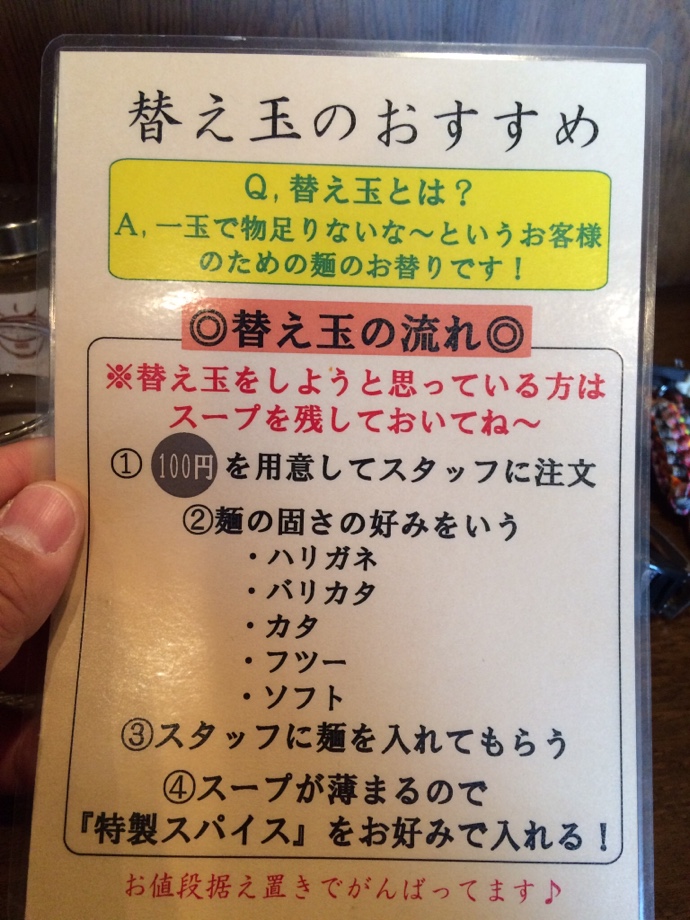 替え玉のおすすめ
Q, 替え玉とは？
A, 一玉で物足りないな～というお客様
のための麺のお替りです！
◎替え玉の流れ◎
※替え玉をしようと思っている方は
スープを残しておいてね～
① 100円 を用意してスタッフに注文
②麺の固さの好みをいう
・ハリガネ
・バリカタ
・カタ
・フツー
・ソフト
③スタッフに麺を入れてもらう
④スープが薄まるので
『特製スパイス』をお好みで入れる！
お値段据え置きでがんばってます♪